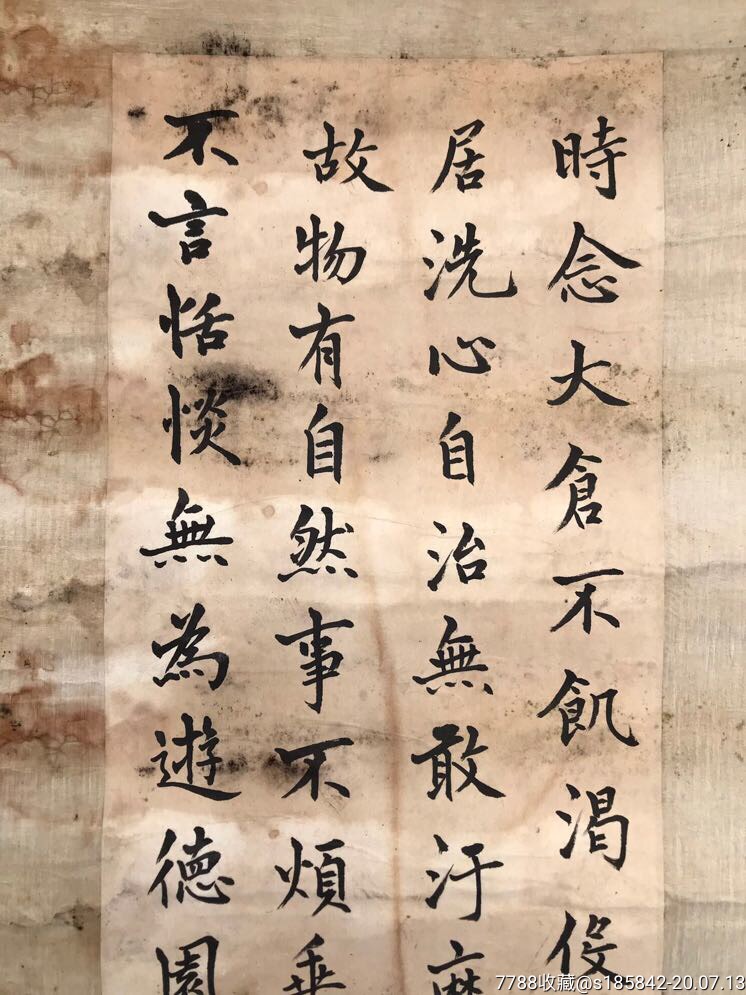 時念大倉不飢渴役
居洗心自治無敢汙
故物有自然事不煩垂
不言恬惔無為遊德園
7788收藏@s185842-20.07.13